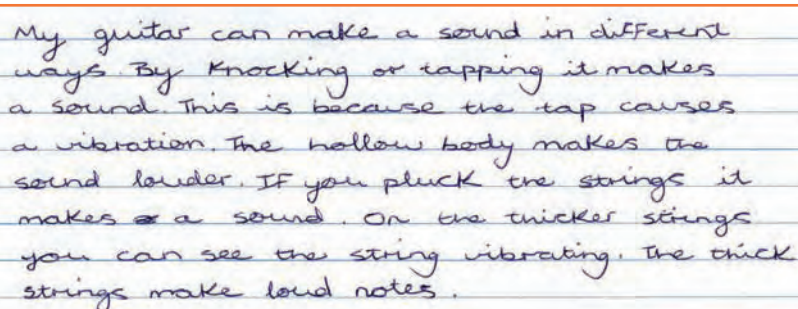 My guitar can make a sound in different
ways. By knocking or tapping it makes
a sound. This is because the tap causes
a vibration. The hollow body makes the
sound louder. If you pluck the strings it
makes a sound. On the thicker strings
you can see the string vibrating. The thick
strings make loud notes.